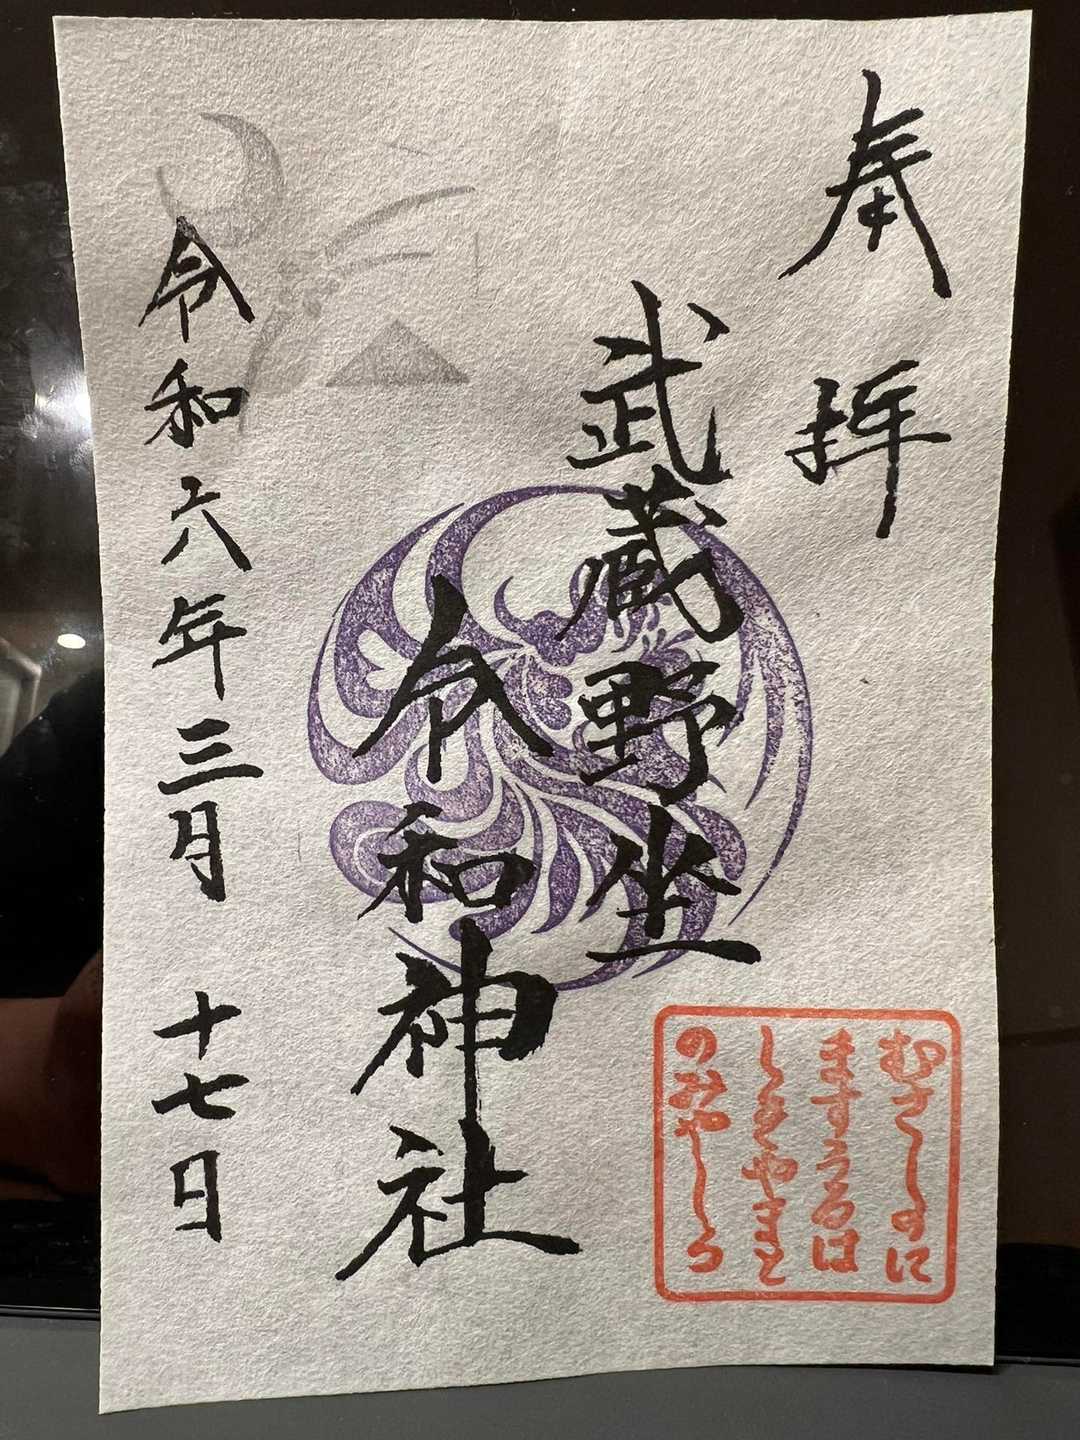 奉拝
武蔵野坐
令和神社
令和六年三月十七日
むさしのに
ますうるは
しきやまと
のみやしろ